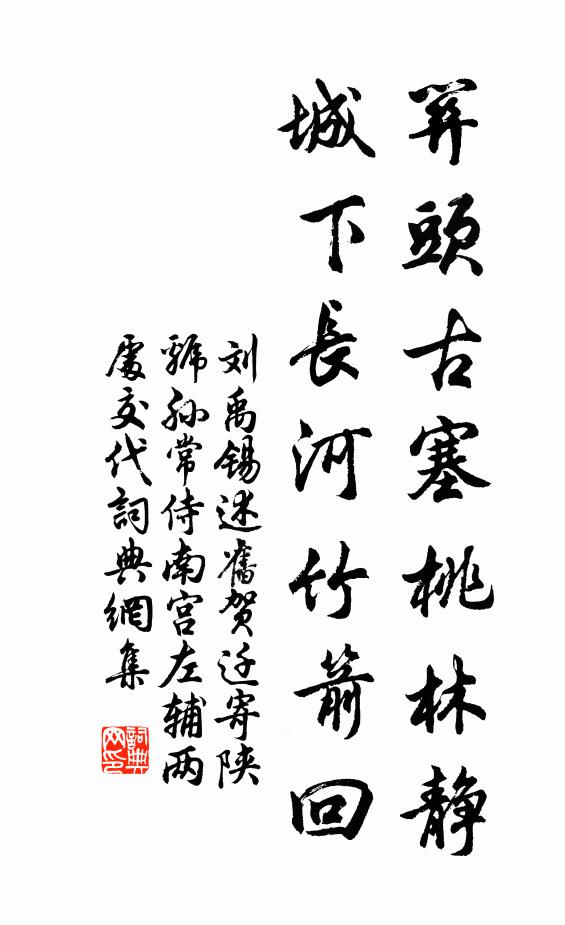 關頭古塞桃林静
城下長河竹箭回
刘禹锡述舊贺迁寄陕
虢孙常侍南宫左辅两
處交代詞典網集
詞典
网印